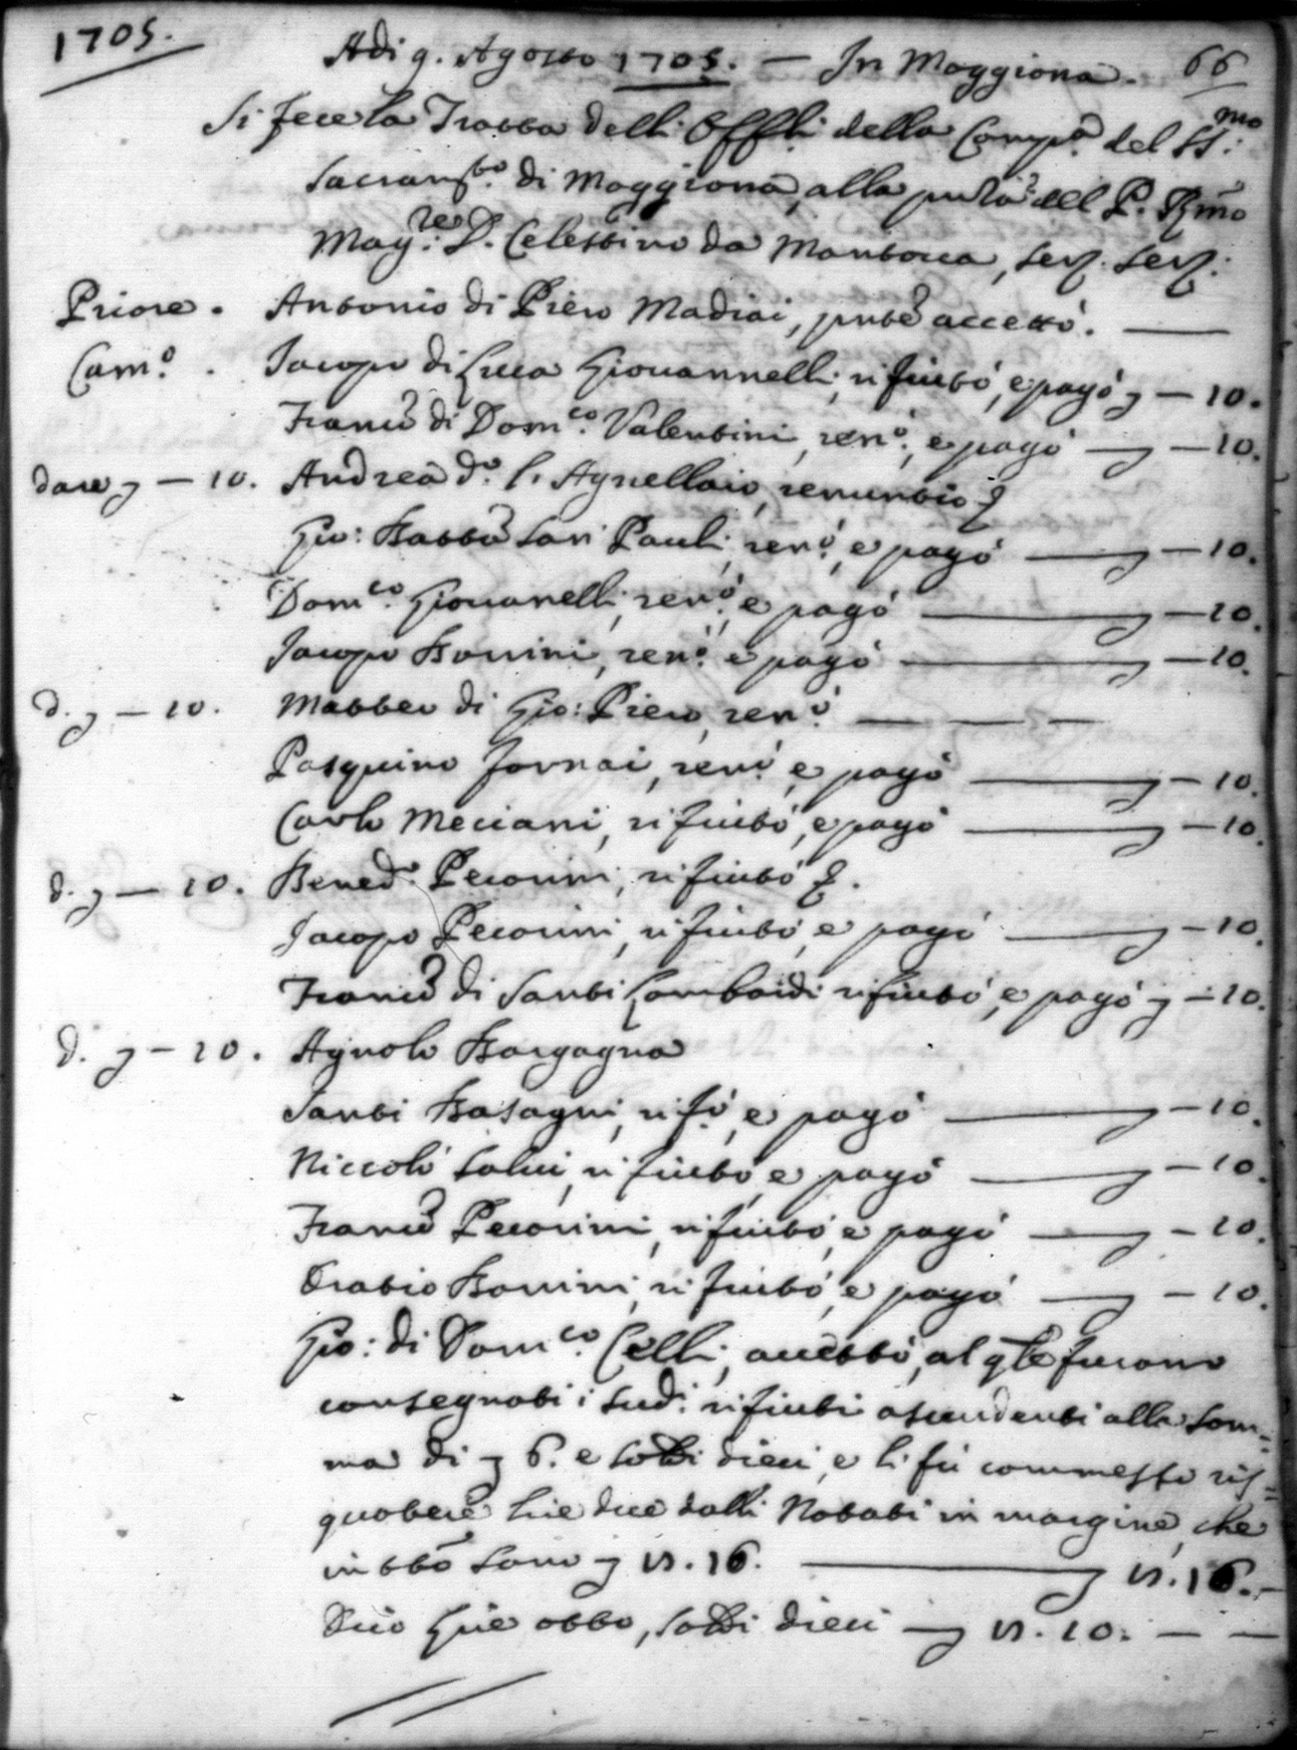 1705.
Adi 9. Agosto 1705. — In Moggiona. 66
Si fece la Tratta delli Offli: della Compa. del SS:mo
Sacramto. di Moggiona, alla pnza: del P. Rmo
Mag:re D. Celestino da Mantova, serv. serv.
Priore. Antonio di Piero Madiai, pnte accettó. —
Camo. . Jacopo di Luca Giovannelli, rifiutó, e pagó — 10.
Franco di Domco. Valentini, reno:, e pagó — 10.
dare — 10. Andrea do. l'Agnellaio, renuntió
Gio: Batta San Pauli, renó, e pagó — 10.
Domco. Giovanelli, renó, e pagó — 10.
Jacopo Bonini, renó: e pagó — 10.
d. — 10. Matteo di Gio: Piero, renó —
Pasquino Fornai, renó, e pagó — 10.
Carlo Meciani, rifiutó, e pagó — 10.
d. — 10. Bened. Pecorini, rifiutó
Jacopo Pecorini, rifiutó, e pagó — 10.
Franco di Santi Lombardi rifiutó, e pagó — 10.
d. — 10. Agnolo Bargagna
Santi Basagni, rifó, e pagó — 10.
Niccoló Salvi, rifiutó, e pagó — 10.
Franco Pecorini, rifiutó, e pagó — 10.
Oratio Bonini, rifiutó, e pagó — 10.
Gio: di Domco. Celli, accettó, al qle furono
consegnati i sud: rifiuti ascendenti alla som=
ma di 6. e soldi dieci, e li fú commesso ris=
quotere lire due dalli Notati in margine, che
in tto sono 8. 16. — 8. 16. —
Dico lire otto, soldi dieci — 8. 10. — —